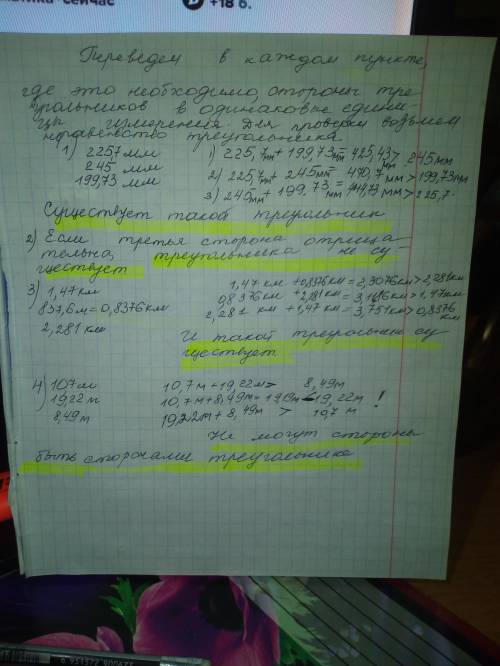 сейчас
+18 б.
Переведем в каждом пункте,
где это необходимо, стороны тре
угольников в одинаковые едини-
цы измерения. Для проверки возьмем
неравенство треугольника.
1) 225,7 мм
245 мм
199,73 мм
1) 225,7 мм + 199,73 мм = 425,43 мм > 245 мм
2) 225,7 мм + 245 мм = 470,7 мм > 199,73 мм
3) 245 мм + 199,73 мм = 444,73 мм > 225,7
Существует такой треугольник
2) Если третья сторона отрица
тельна, треугольника не су-
ществует
3) 1,47 км
837,6 м = 0,8376 км
2,281 км
1,47 км + 0,8376 км = 2,3076 км > 2,281 км
0,8376 км + 2,281 км = 3,1186 км > 1,47 км
2,281 км + 1,47 км = 3,751 км > 0,8376 км
И такой треугольник су
ществует
4) 10,7 м
19,22 м
8,49 м
10,7 м + 19,22 м > 8,49 м
10,7 м + 8,49 м = 19,19 м < 19,22 м !
19,22 м + 8,49 м > 10,7 м
Не могут стороны
быть сторонами треугольника